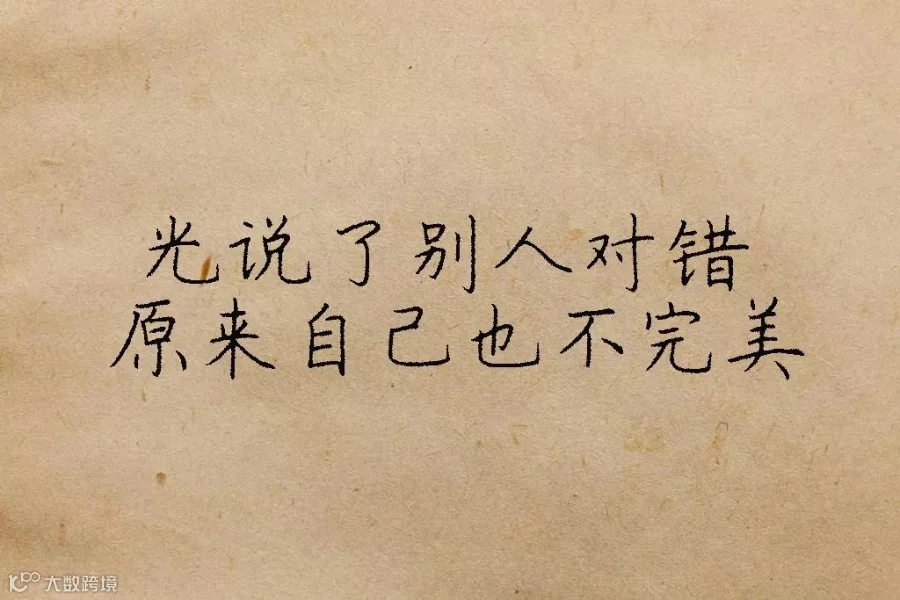 光说了别人对错
原来自己也不完美
大数跨境